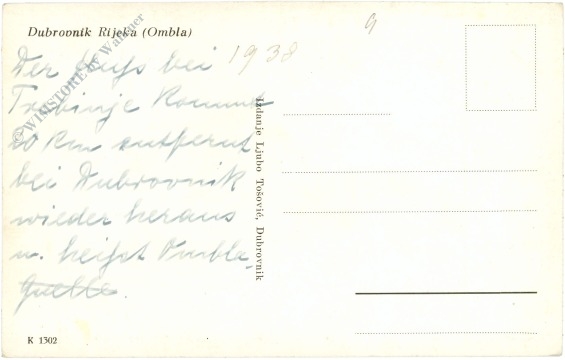 Dubrovnik Rijeka (Ombla)
9
1938
Der Fluss bei
Trebinje kommt
60 km entfernt
bei Dubrovnik
wieder heraus
u. heißt Ombla-
Quelle.
WIMSTORE by Wallner
Izdanje Ljubo Tošović, Dubrovnik
K 1302